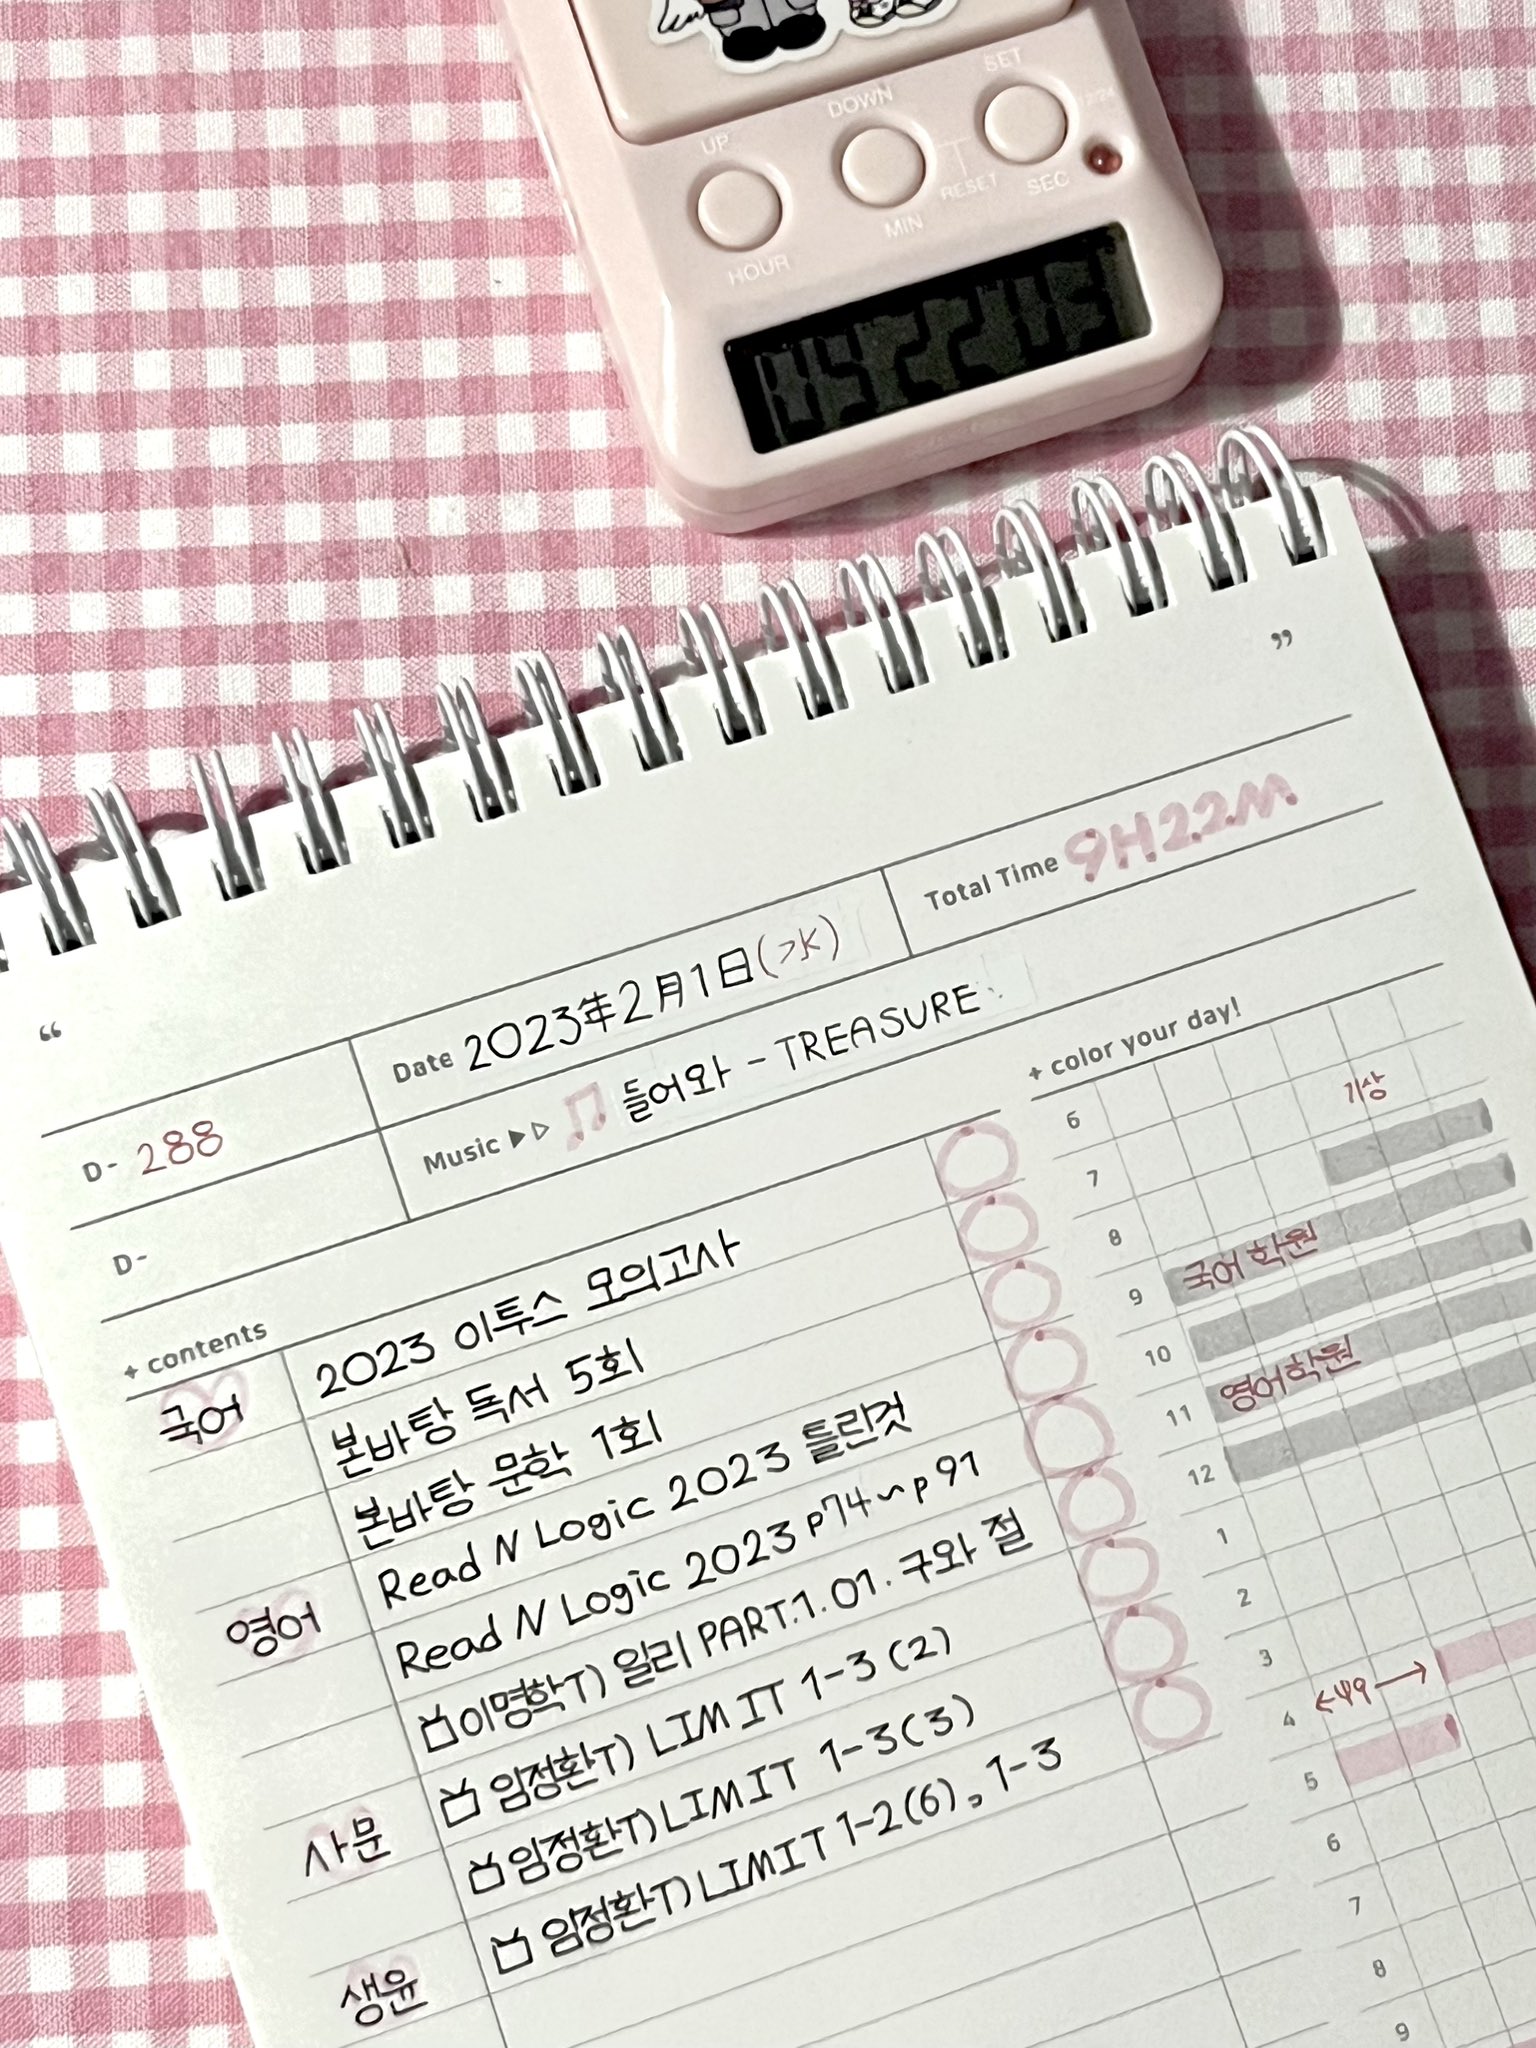 UP
DOWN
SET
12/24
HOUR
MIN
RESET
SEC
“
”
D- 288
Date 2023年2月1日(水)
Total Time 9H22M
D-
Music 들어와 - TREASURE
+ contents
+ color your day!
국어
2023 이투스 모의고사
본바탕 독서 5회
본바탕 문학 1회
영어
Read N Logic 2023 틀린것
Read N Logic 2023 p74~p91
이명학T) 일리 PART.1. 01. 구와 절
사문
임정환T) LIMIT 1-3 (2)
임정환T) LIMIT 1-3(3)
생윤
임정환T) LIMIT 1-2(6), 1-3
6
기상
7
8
국어 학원
9
10
영어학원
11
12
1
2
3
4
5
6
7
8
9